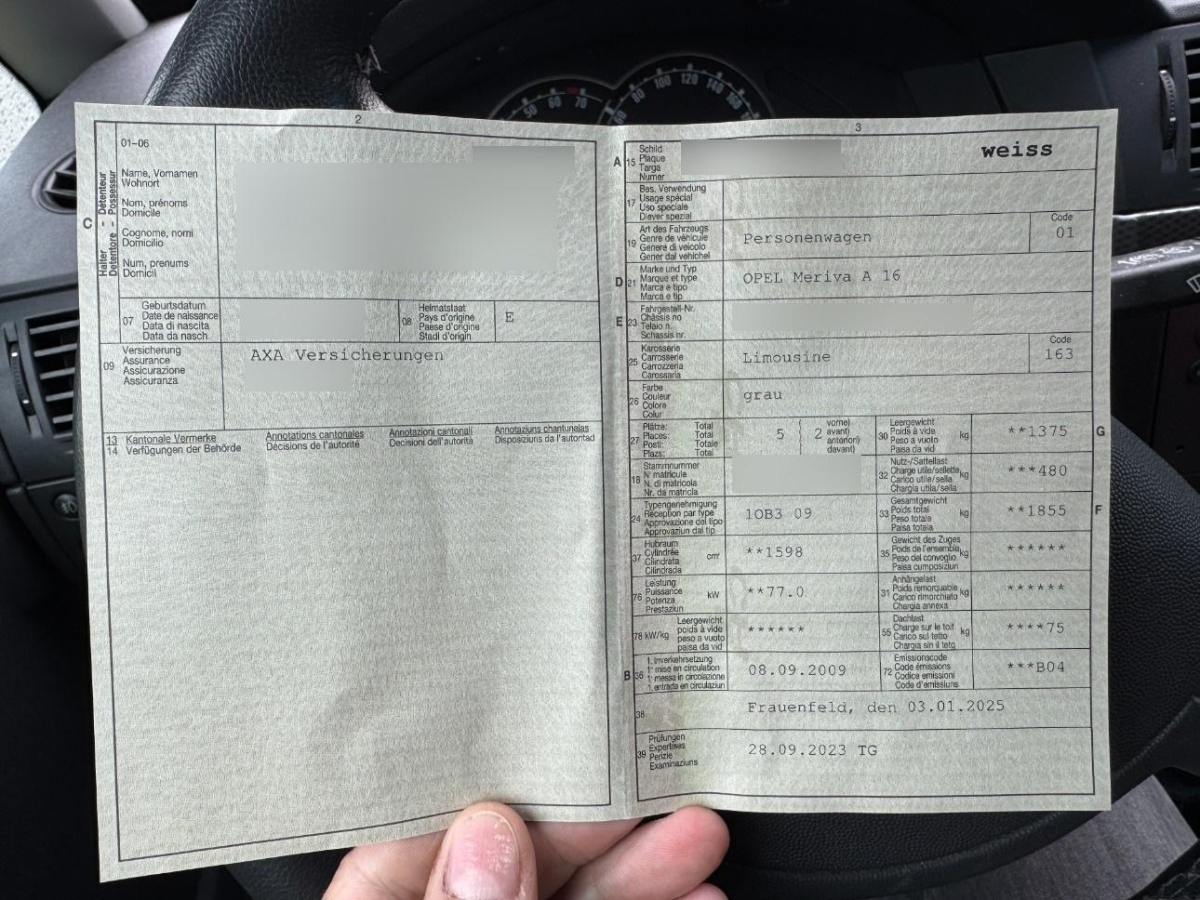 2
01-06
C
Halter - Détenteur
Detentore - Possessur
Name, Vornamen
Wohnort
Nom, prénoms
Domicile
Cognome, nomi
Domicilio
Num, prenums
Domicil
07
Geburtsdatum
Date de naissance
Data di nascita
Data da nasch.
08
Heimatstaat
Pays d'origine
Paese d'origine
Stadi d'origin
E
09
Versicherung
Assurance
Assicurazione
Assicuranza
AXA Versicherungen
13 Kantonale Vermerke
14 Verfügungen der Behörde
Annotations cantonales
Décisions de l'autorité
Annotazioni cantonali
Decisioni dell'autorità
Annotaziuns chantunalas
Disposiziuns da l'autoritad
3
A 15
Schild
Plaque
Targa
Numer
weiss
17
Bes. Verwendung
Usage spécial
Uso speciale
Diever spezial
19
Art des Fahrzeugs
Genre de véhicule
Genere di veicolo
Gener dal vehichel
Personenwagen
Code
01
D 21
Marke und Typ
Marque et type
Marca e tipo
Marca e tip
OPEL Meriva A 16
E 23
Fahrgestell-Nr.
Châssis no
Telaio n.
Schassis nr.
25
Karosserie
Carrosserie
Carrozzeria
Carossaria
Limousine
Code
163
26
Farbe
Couleur
Colore
Colur
grau
27
Plätze: Total
Places: Total
Posti: Totale
Plazs: Total
5
2
vorne)
avant)
anteriori)
davant)
30
Leergewicht
Poids à vide
Peso a vuoto
Paisa da vid
kg
**1375
G
18
Stammnummer
N° matricule
N. di matricola
Nr. da matricla
32
Nutz-/Sattellast
Charge utile/sellette
Carico utile/sella
Chargia utila/sella
kg
***480
24
Typengenehmigung
Réception par type
Approvazione del tipo
Approvaziun dal tip
1OB3 09
33
Gesamtgewicht
Poids total
Peso totale
Paisa totala
kg
**1855
F
37
Hubraum
Cylindrée
Cilindrata
Cilindrada
cm³
**1598
35
Gewicht des Zuges
Poids de l'ensemble
Peso del convoglio
Paisa cumposiziun
kg
******
76
Leistung
Puissance
Potenza
Prestaziun
kW
**77.0
31
Anhängelast
Poids remorquable
Carico rimorchiato
Chargia annexa
kg
******
78 kW/kg
Leergewicht
poids à vide
peso a vuoto
paisa da vid
******
55
Dachlast
Charge sur le toit
Carico sul tetto
Chargia sin il tetg
kg
****75
B 36
1. Inverkehrsetzung
1re mise en circulation
1a messa in circolazione
1. entrada en circulaziun
08.09.2009
72
Emissionscode
Code émissions
Codice emissioni
Code d'emissiuns
***B04
38
Frauenfeld, den 03.01.2025
39
Prüfungen
Expertises
Perizie
Examinaziuns
28.09.2023 TG
50
70
80
100
120
140
160